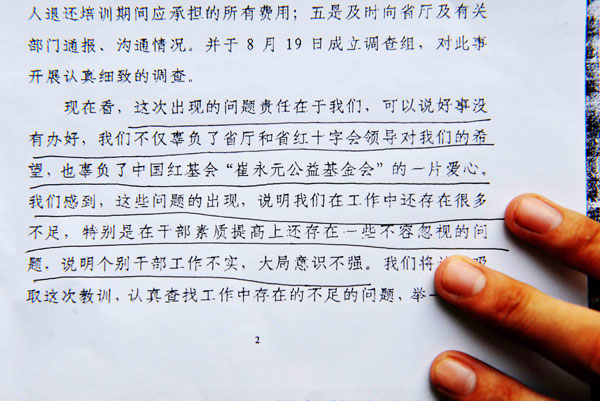 人退还培训期间应承担的所有费用；五是及时向省厅及有关
部门通报、沟通情况。并于8月19日成立调查组，对此事
开展认真细致的调查。
现在看，这次出现的问题责任在于我们，可以说好事没
有办好，我们不仅辜负了省厅和省红十字会领导对我们的希
望，也辜负了中国红基会“崔永元公益基金会”的一片爱心。
我们感到，这些问题的出现，说明我们在工作中还存在很多
不足，特别是在干部素质提高上还存在一些不容忽视的问
题，说明个别干部工作不实，大局意识不强。我们将
取这次教训，认真查找工作中存在的不足的问题，举一
2